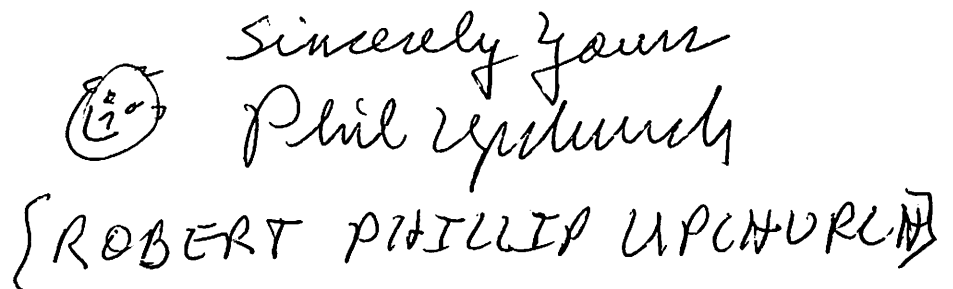 Sincerely Yours
Phil Upchurch
{ROBERT PHILLIP UPCHURCH}